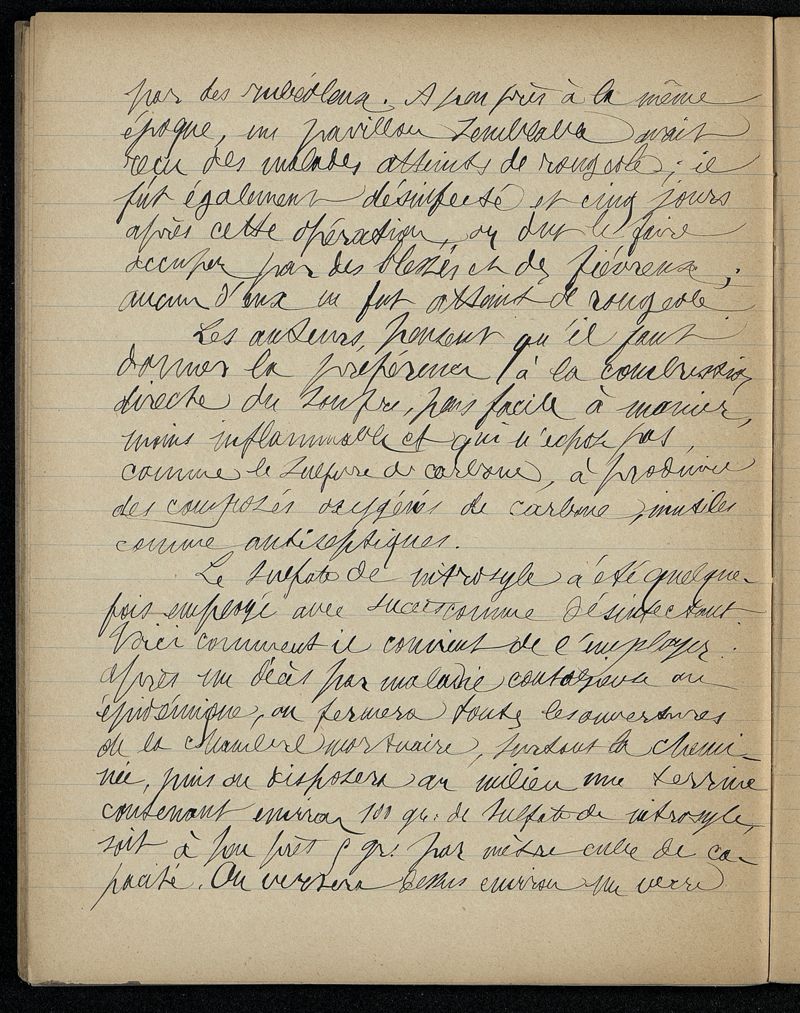 par des rubéoleux. A peu près à la même
époque, un pavillon semblable avait
reçu des malades atteints de rougeole ; il
fut également désinfecté et cinq jours
après cette opération, on dut le faire
occuper par des blessés et des fiévreux ;
aucun d'eux ne fut atteint de rougeole
Les auteurs pensent qu'il faut
donner la préférence à la combustion
directe du soufre, plus facile à manier,
moins inflammable et qui n'expose pas,
comme le sulfure de carbone, à produire
des composés oxygénés de carbone, inutiles
comme antiseptiques.
Le sulfate de nitrosyle a été quelque-
fois employé avec succès comme désinfectant.
Voici comment il convient de l'employer :
après un décès par maladie contagieuse ou
épidémique, on fermera toutes les ouvertures
de la chambre mortuaire, surtout la chemi-
née, puis on disposera au milieu une terrine
contenant environ 100 gr. de sulfate de nitrosyle,
soit à peu près gr. par mètre cube de ca-
pacité. On versera dessus environ un verre